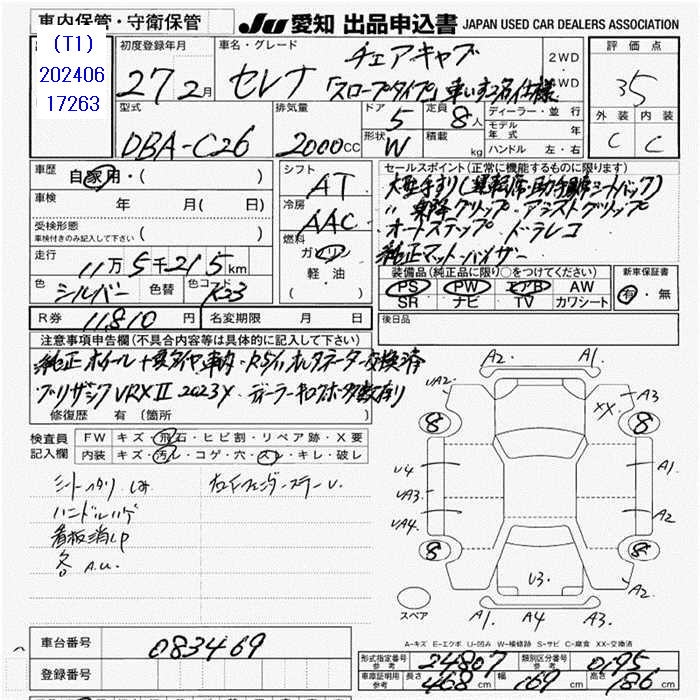 車内保管・守衛保管
JU 愛知 出品申込書 JAPAN USED CAR DEALERS ASSOCIATION
(T1)
202406
17263
初度登録年月
27年2月
車名・グレード
セレナ チェアキャブ
「スロープタイプ」車いす2名仕様
2WD
4WD
評価点
3.5
外装 内装
C C
型式
DBA-C26
排気量
2000cc
ドア
5
形状
W
定員
8人
積載 kg
ディーラー・並行
モデル年式 年
ハンドル 左・右
車歴
自家用・( )
車検 年 月( 日)
受検形態
車検付きのみ記入して下さい ( )
走行
11万5千215km
色 シルバー 色替 色コード K33
シフト
AT
冷房
AAC
燃料
ガソリン
軽油
( )
セールスポイント(正常に機能するものに限ります)
大型手すり(運転席・助手席シートバック)
〃 乗降グリップ・アシストグリップ
オートステップ ドラレコ
純正マット・バイザー
装備品(純正品に限り○をつけてください)
PS PW エアB AW
SR ナビ TV カワシート
新車保証書
有・無
R券 11810円 名変期限 月 日
後日品
注意事項申告欄(不具合内容等は具体的に記入して下さい)
純正ホイール+夏タイヤ車内・R5/11オルタネーター交換済
ブリザックVRXⅡ 2023X ディーラーキロクボ多数有り
修復歴 有(箇所 )
検査員記入欄
FW キズ・飛石・ヒビ割・リペア跡・X要
内装 キズ・汚レ・コゲ・穴・スレ・キレ・破レ
シートヘタリ シミ
ハンドルハゲ
看板消しP
各 A.U.
A2 A1
UA2 XX A3
8 8
U4 A1
UA3
UA4 A2
8 8
U3
スペア
A1 A4 A3 A2
A-キズ E-エクボ U-凹み W-補修跡 S-サビ C-腐食 XX-交換済
車台番号 083469
登録番号
形式指定番号 参考 24807 類別区分番号 参考 0195
車庫証明用 参考 長さ 468cm 幅 169cm 高さ 186cm